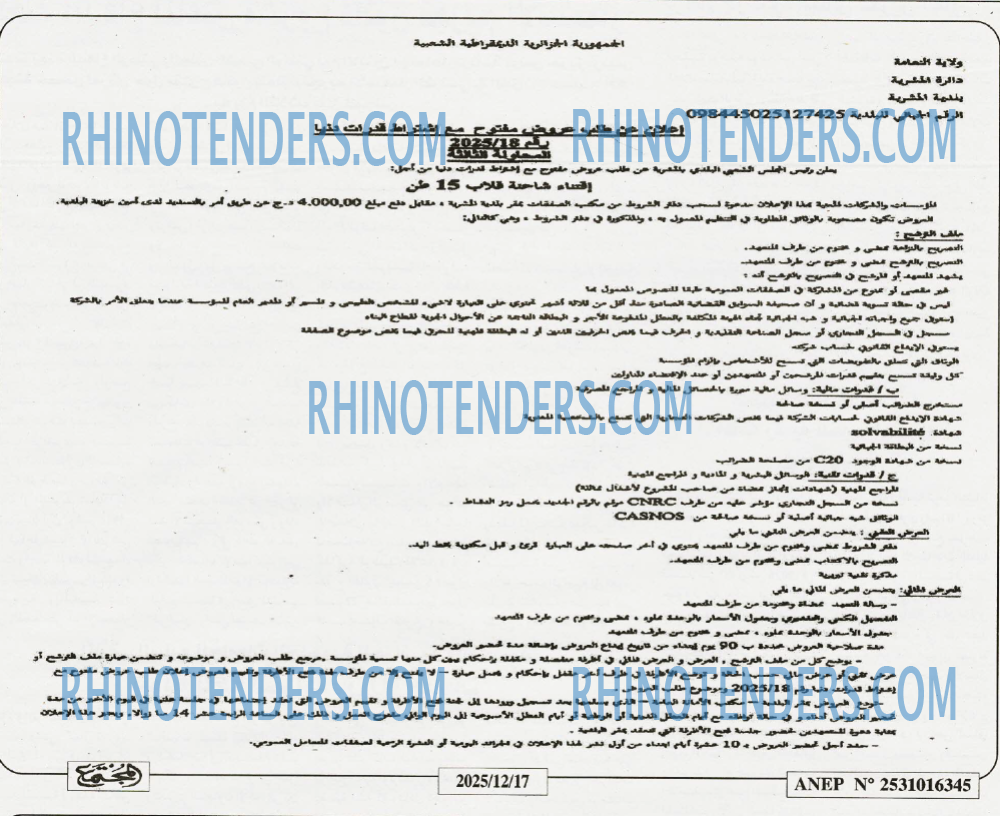 الجمهورية الجزائرية الديمقراطية الشعبية
ولاية النعامة
دائرة المشرية
بلدية المشرية
الرقم الجبائي للبلدية 098445025127425
إعلان عن طلب عروض مفتوح مع اشتراط قدرات دنيا
رقم 2025/18
المحاولة الثالثة
يعلن رئيس المجلس الشعبي البلدي بالمشرية عن طلب عروض مفتوح مع إشتراط قدرات دنيا من أجل:
إقتناء شاحنة قلاب 15 طن
للمؤسسات والشركات المعنية بهذا الإعلان مدعوة لسحب دفتر الشروط من مكتب الصفقات بمقر بلدية المشرية ، مقابل دفع مبلغ 4.000,00 د.ج عن طريق أمر بالتسديد لدى أمين خزينة البلدية.
العروض تكون مصحوبة بالوثائق المطلوبة في التنظيم المعمول به ، والمذكورة في دفتر الشروط ، وهي كالتالي:
ملف الترشح :
التصريح بالنزاهة ممضي و مختوم من طرف المتعهد.
التصريح بالترشح ممضي و مختوم من طرف المتعهد.
يشهد المتعهد أو المرشح في التصريح بالترشح أنه :
غير مقصى أو ممنوع من المشاركة في الصفقات العمومية طبقا للنصوص المعمول بها
ليس في حالة تسوية قضائية و أن صحيفة السوابق القضائية الصادرة منذ أقل من ثلاثة أشهر تحتوي على العبارة لاشيء للشخص الطبيعي و المسير أو المدير العام للمؤسسة عندما يتعلق الأمر بالشركة
إستوفى جميع واجباته الجبائية و شبه الجبائية تجاه الهيئة المكلفة بالعطل المدفوعة الأجر و البطالة الناتجة عن الأحوال الجوية لقطاع البناء
مسجل في السجل التجاري أو سجل الصناعة التقليدية و الحرف فيما يخص الحرفيين الفنيين أو له البطاقة المهنية للحرفي فيما يخص موضوع الصفقة
يستوفي الإيداع القانوني لحسابات شركته
الوثائق التي تتعلق بالتفويضات التي تسمح للأشخاص بإلزام المؤسسة
كل وثيقة تسمح بتقييم قدرات المرشحين أو المتعهدين أو عند الإقتضاء المناولين
ب / قدرات مالية: وسائل مالية مبررة بالحصائل المالية و المراجع المصرفية
مستخرج الضرائب أصلي أو نسخة صالحة
شهادة الإيداع القانوني لحسابات الشركة فيما يخص الشركات التجارية التي تتمتع بالشخصية المعنوية
شهادة solvabilité
نسخة من البطاقة الجبائية
نسخة من شهادة الوجود C20 من مصلحة الضرائب
ج / قدرات تقنية: الوسائل البشرية و المادية و المراجع المهنية
المراجع المهنية (شهادات إنجاز ممضاة من صاحب المشروع لأشغال مماثلة)
نسخة من السجل التجاري مؤشر عليه من طرف CNRC مرقم بالرقم الجديد يحمل رمز النشاط .
الوثائق شبه جبائية أصلية أو نسخة صالحة من CASNOS
العرض التقني : يتضمن العرض التقني ما يلي
دفتر الشروط ممضي ومختوم من طرف المتعهد يحتوي في آخر صفحته على العبارة قرئ و قبل مكتوبة بخط اليد.
التصريح بالاكتتاب ممضي ومختوم من طرف المتعهد.
مذكرة تقنية تبريرية
العرض المالي: يتضمن العرض المالي ما يلي
– رسالة التعهد ممضاة ومختومة من طرف المتعهد
التفصيل الكمي والتقديري وجدول الأسعار بالوحدة مملوء ، ممضي ومختوم من طرف المتعهد
جدول الأسعار بالوحدة مملوء ، ممضي و مختوم من طرف المتعهد
مدة صلاحية العروض محددة ب 90 يوم إبتداء من تاريخ إيداع العروض بإضافة مدة تحضير العروض.
– يوضع كل من ملف الترشح ، العرض و العرض المالي في أظرفة منفصلة و مقفلة بإحكام يبين كل منها تسمية المؤسسة ومرجع طلب العروض و موضوعه و تتضمن عبارة ملف الترشح أو
إشتراط قدرات دنيا رقم 2025/18 وموضوع طلب العروض
بمثابة دعوة للمتعهدين لحضور جلسة فتح الأظرفة التي تنعقد بمقر البلدية .
– حدد أجل تحضير العروض بـ 10 عشرة أيام ابتداء من أول نشر لهذا الإعلان في الجرائد اليومية أو النشرة الرسمية لصفقات المتعامل العمومي.
المجتمع
2025/12/17
ANEP N° 2531016345
RHINOTENDERS.COM
RHINOTENDERS.COM
RHINOTENDERS.COM
RHINOTENDERS.COM
RHINOTENDERS.COM